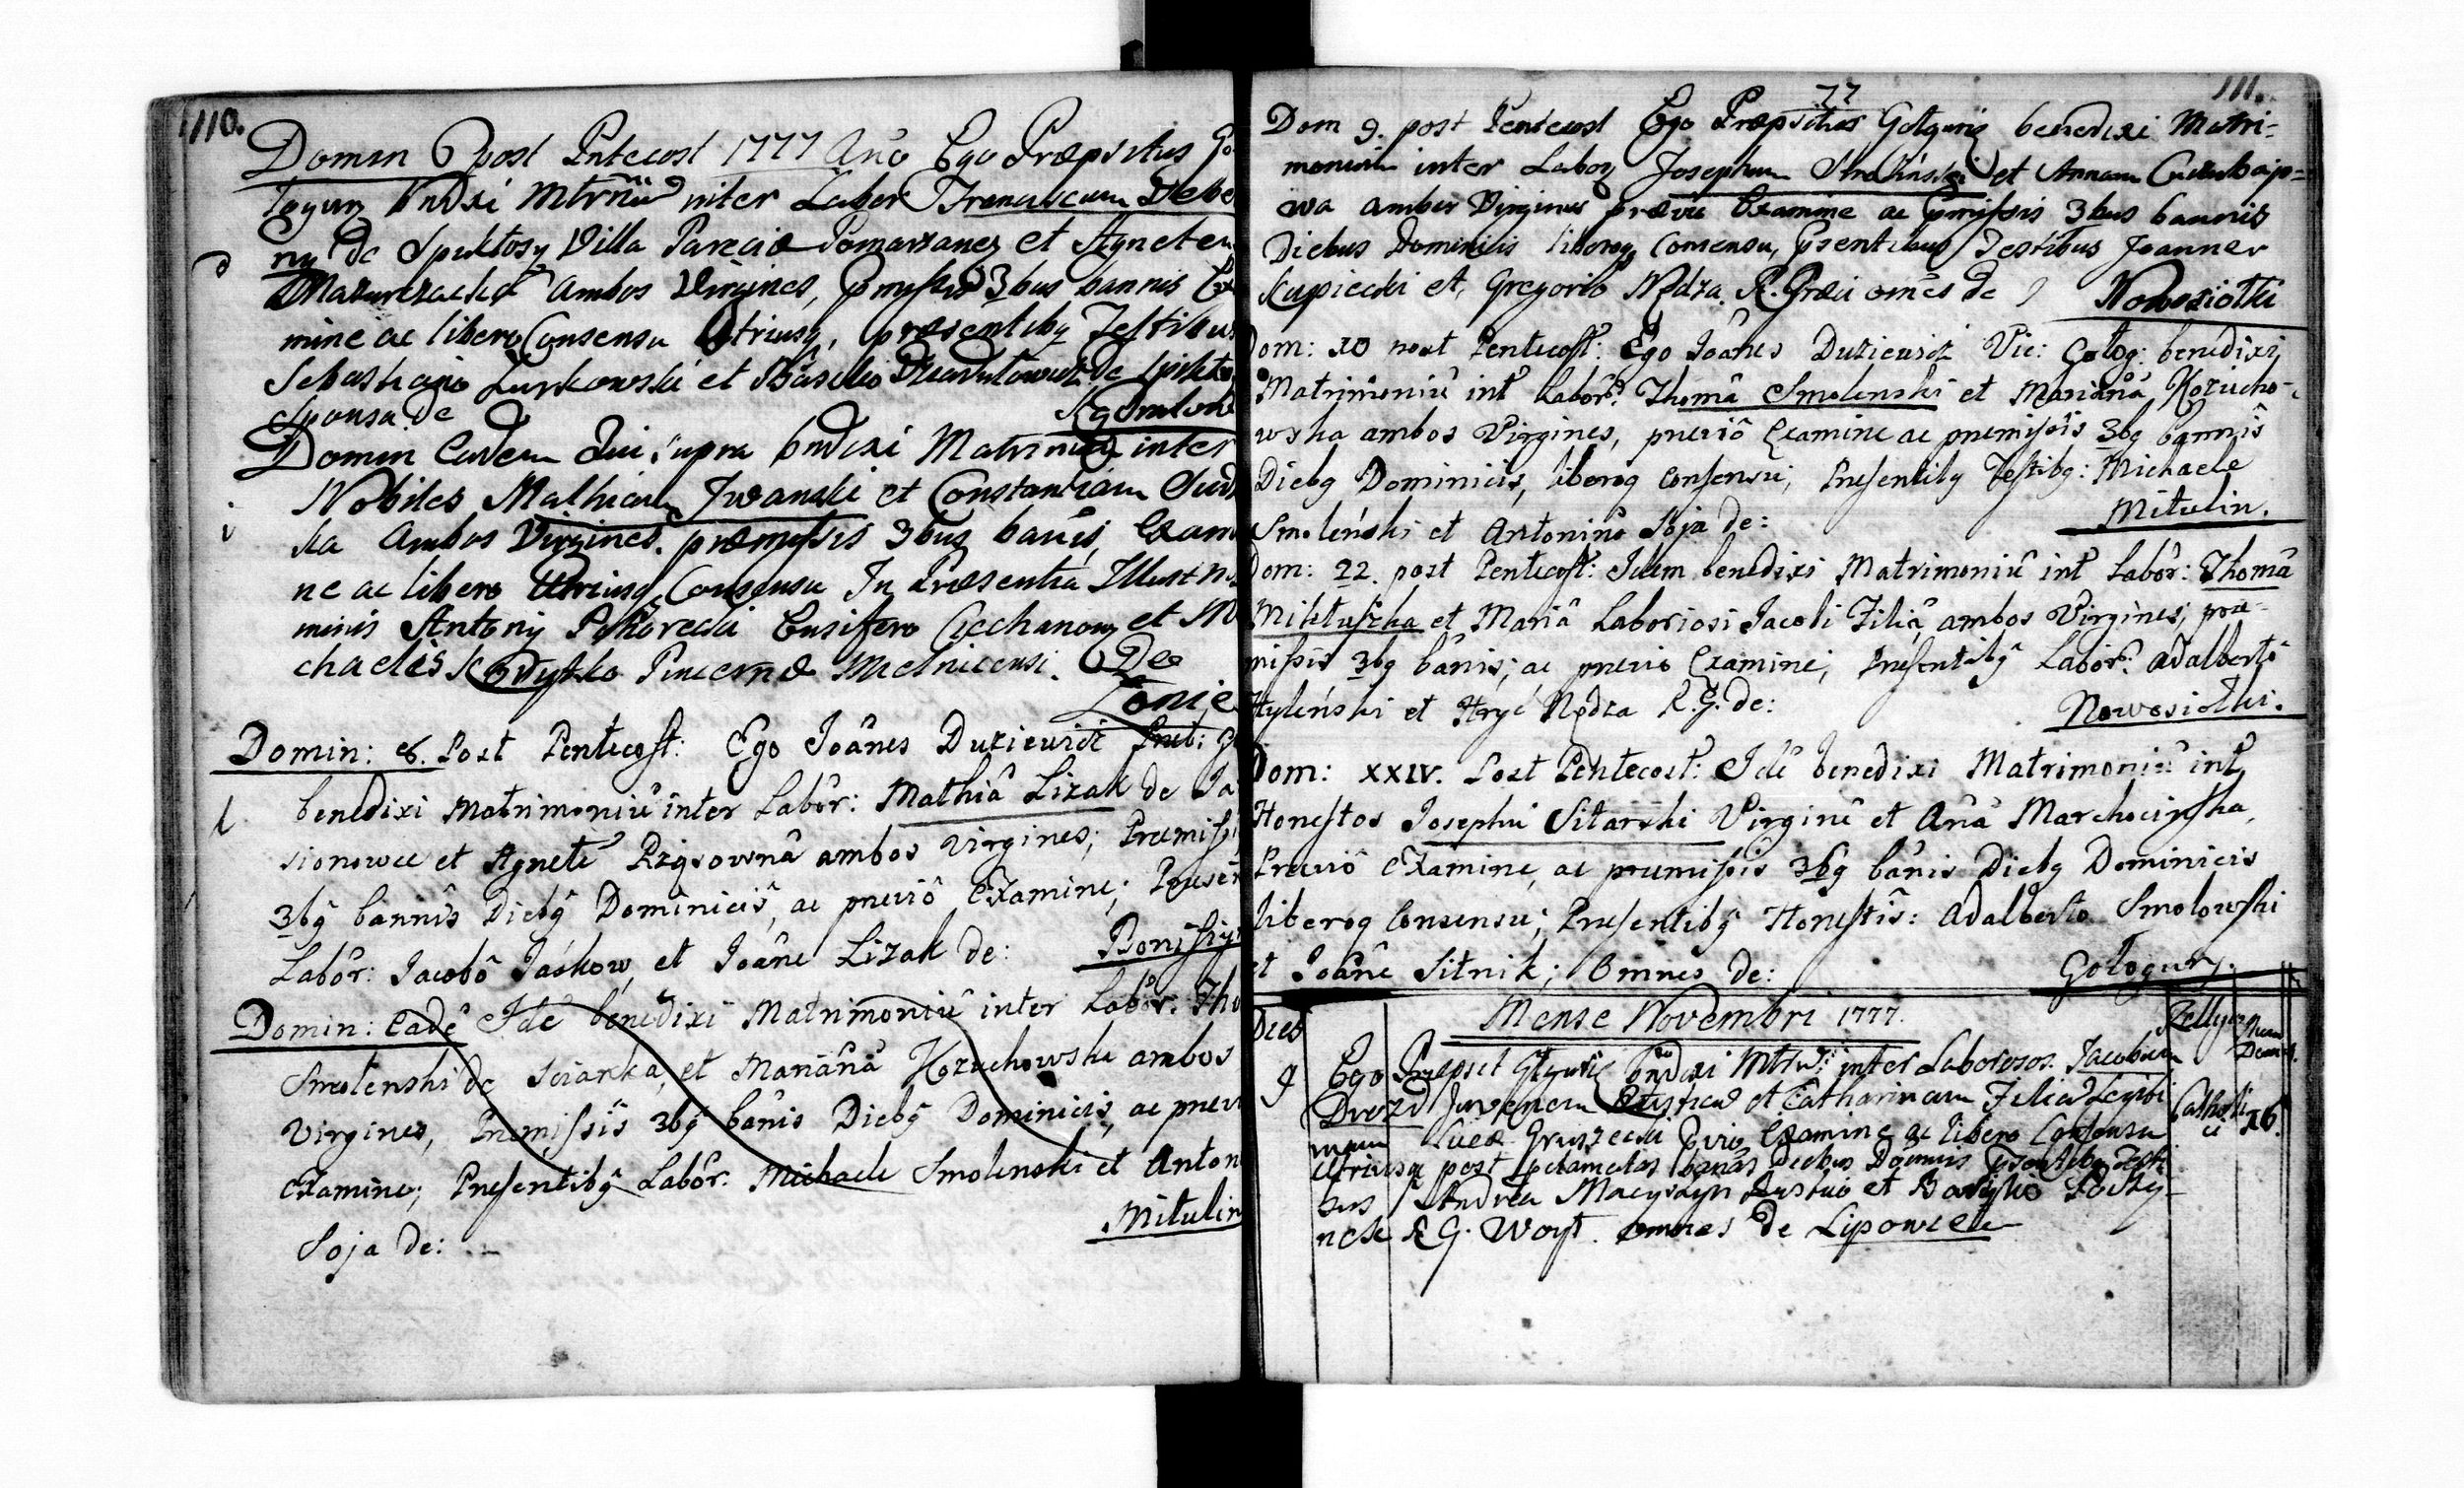 110.
Domin 6 post Pntecost 1777 Año Ego Præpsitus Go
logury bndxi Mtrñiu inter Labor Franciscum Debe
ny de Spiktosy Villa Pareciæ Pomarzanez et Agnetem
Mazurczacka ambos Virgines, Pmissis 3bus bannis Exa
mine ac libero Consensu Utriusq, præsentibq Testibus
Sebastiano Lurkowski et Basilio de Spikto
Sponsa de
Domin Eadem Qui supra bndixi Matrimoniu inter
Nobiles Mathiam Iwanski et Constantiam Sud
ska Ambos Virgines. præmissis 3bus banis, Exami
ne ac libero Utriusq Consensu In Præsentia Illust
minis Antony Ensifero Ciechanow et Mi
chaeles Pincernæ Mielnicensi. De
Zonie
Domin: 8. Post Pentecost: Ego Joânes Duziewicz
benedixi Matrimoniû inter Labôr: Mathiâ Lizak de Ja
sionowce et Agnetê Rzigsownâ ambos Virgines; Premissi
3bq bannîs Diebq Dominicis, ac previô Examine; Presen
Labôr: Jacobô Jaśkow, et Joâne Lizak de: Boniszyn
Domin: Eadê Idê benedixi Matrimoniû inter Labôr: Tho
Smolenski de Sciarka, et Mariânâ Kozuchowski ambos
Virgines, Premissis 3bq bânis Diebq Dominicis, ac previ
Examine; Presentibq Labôr: Michaele Smolenski et Anton
Mitulin
Soja de:
111.
77
Dom 9. post Pentecost Ego Præpsitus Gologuris benedixi Matri-
monium inter Labor Josephum et Annam
wa ambos Virgines prævio Examine ac Pmissis 3bus bannis
Diebus Dominicis liberoq Consensu, Psentibus Testibus Joannes
Kupiecki et Gregorio Nędza R. Græci omēs de Nowosiołki
Dom: 10 post Pentecost: Ego Joânes Duziewicz Vic: Golog: benedixi
Matrimoniû int Labôr: Thomâ Smolenski et Mariânâ Kozucho-
wska ambos Virgines, previô Examine ac premissis 3bq bannis
Diebq Dominicis, liberoq Consensu; Presentibq Testibq: Michaele
Smoleński et Antonino Soja de: Mitulin.
Dom: 22. post Pentecost: Idem benedixi Matrimoniû int Labôr: Thomâ
Mikłuszka et Mariâ Laboriosi Jacobi Filiâ, ambos Virgines, pre-
missis 3bq bânis; ac previo Examine; Presentibq Labôr: Adalbertô
Hyleński et Hryć Nędza R.G. de: Nowosiołki.
Dom: XXIV. Post Pentecost: Idê benedixi Matrimoniû int
Honestos Josephû Sitarski Virginê et Anâ Marchocinska,
Previô Examine, ac premissis 3bq bânis Diebq Dominicis
liberoq Consensu; Presentibq Honestîs: Adalberto Smolowski
et Joâne Sitnik; Omnes de: Gołogury.
Mense Novembri 1777.
Dies
9 Ego Præpsit Glguris bndixi Mtrm: inter Laboriosos. Jacobum
Drozd Juvenem et Catharinam Filia Legiti
mam Lucæ Gruszecki Pvio Examine ac libero Consensu Catholici 26.
utriusq post Pclamatas banas Diebus Dōmnis Psentibq Testi
bus Andrea et Basylio
R G. Woyt. omnes de Lipowce